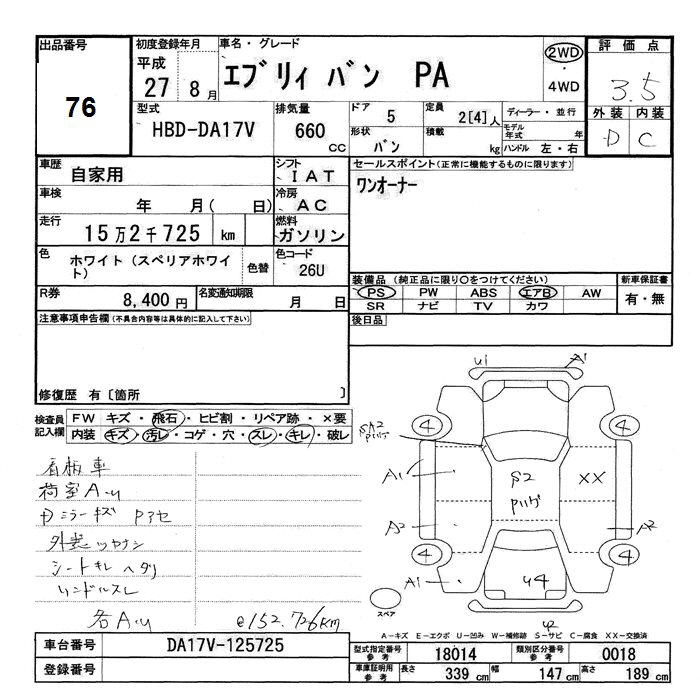 出品番号
76
初度登録年月
平成
27 8月
車名・グレード
エブリィ バン PA
2WD
・
4WD
評価点
3.5
外装 内装
D C
型式
HBD-DA17V
排気量
660 cc
ドア
5
形状
バン
定員
2[4]人
積載
kg
ディーラー・並行
モデル年式 年
ハンドル 左・右
車歴
自家用
シフト
IAT
車検
年 月( 日)
冷房
AC
走行
15万2千725 km
燃料
ガソリン
色
ホワイト(スペリアホワイト)
色替
色コード
26U
R券
8,400円
名変通知期限
月 日
セールスポイント(正常に機能するものに限ります)
ワンオーナー
装備品(純正品に限り○をつけてください)
新車保証書
PS PW ABS エアB AW
SR ナビ TV カワ
有・無
後日品
注意事項申告欄(不具合内容等は具体的に記入して下さい)
修復歴 有〔箇所 〕
検査員記入欄
FW キズ・飛石・ヒビ割・リペア跡・×要
内装 キズ・汚レ・コゲ・穴・スレ・キレ・破レ
看板車
荷室A.U
Dミラーキズ Pアセ
外装ツヤナシ
シートキレ ヘタリ
ハンドルスレ
各A.U
@152.726KM
U1
A1
4
4
A1
S2
XX
A2
A2
4
4
A1
U4
スペア
A-キズ E-エクボ U-凹み W-補修跡 S-サビ C-腐食 XX-交換済
車台番号
DA17V-125725
登録番号
型式指定番号
参考
18014
類別区分番号
参考
0018
車庫証明用
参考
長さ 339 cm
幅 147 cm
高さ 189 cm